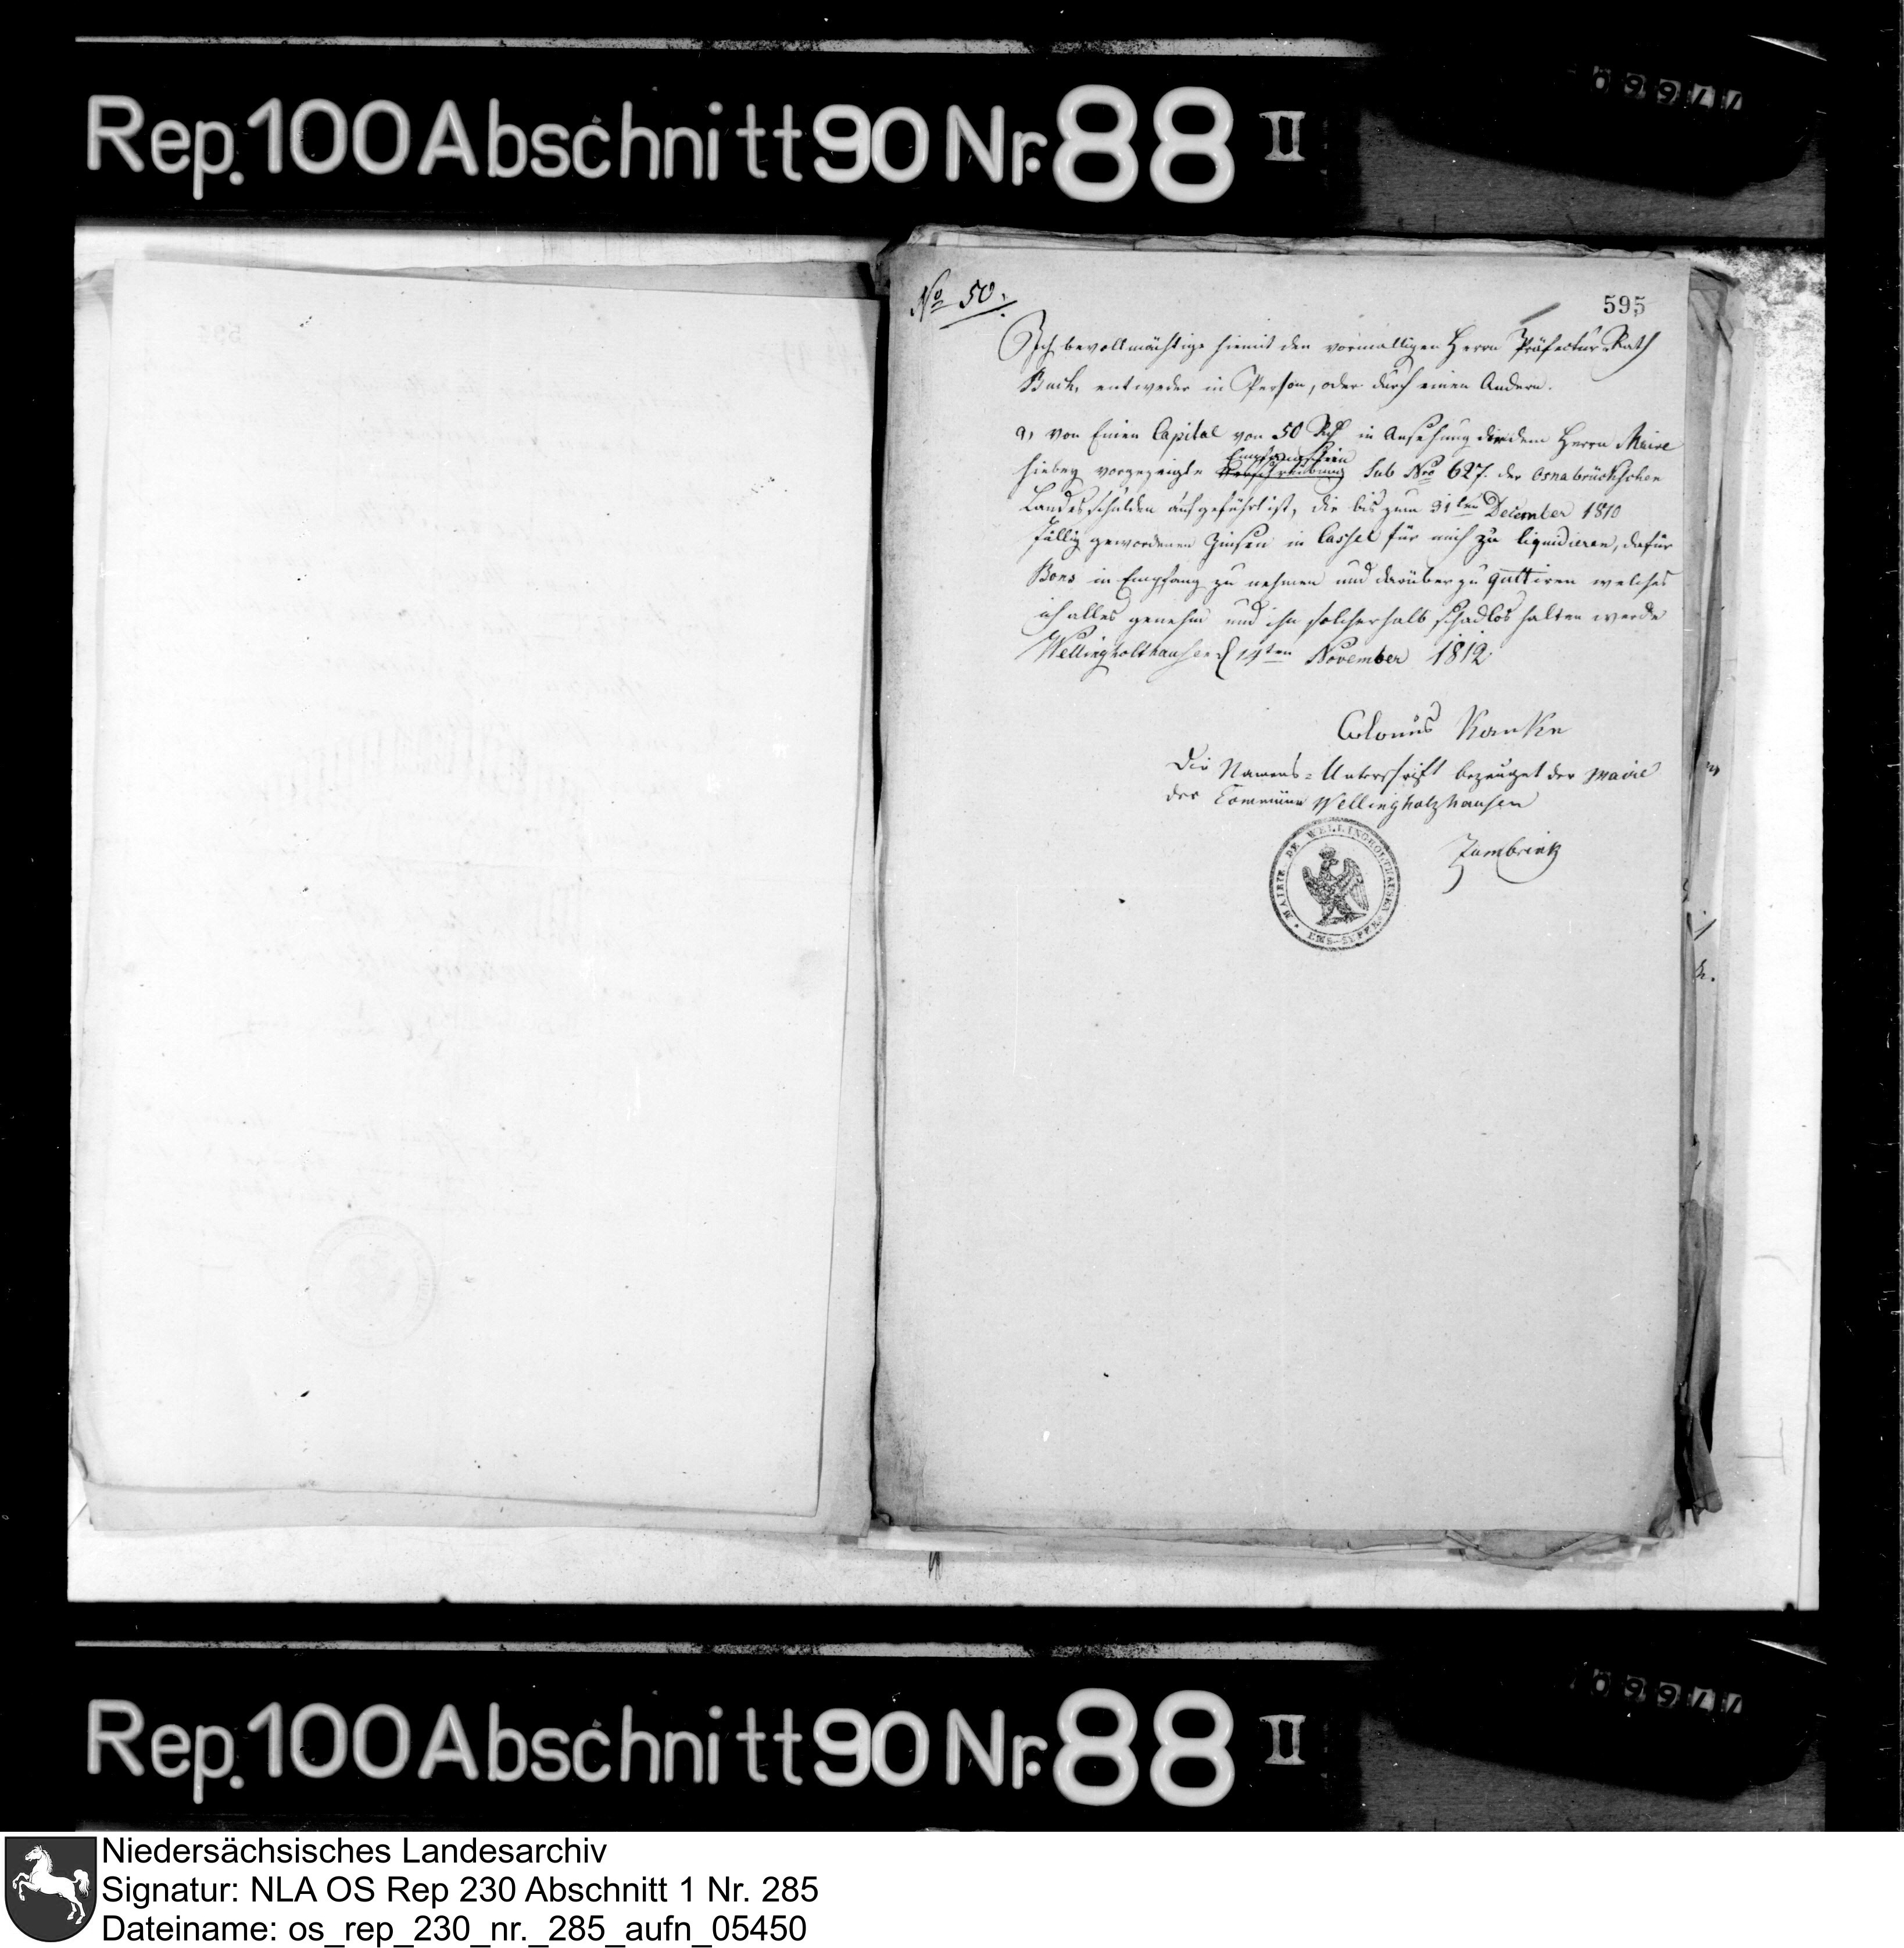 Rep. 100 Abschnitt 90 Nr. 88 II
No 50.
595
Ich bevollmächtige hiemit den vormaligen Herrn Präfectur-Rath
Bach, entweder in Person, oder durch einen Andern.
a, von Einen Capital von 50 Rth in Ansehung die dem Herrn Maire
Empfangschein
hiebey vorgezeigte Verschreibung sub Nro 627. der osnabrückschen
Landesschulden aufgeführt ist, die bis zum 31ten December 1810
fällig gewordenen Zinsen in Cassel für mich zu liquidieren, dafür
Bons in Empfang zu nehmen und darüber zu quttiren welches
ich alles genehm und ihn solcherhalb schadlos halten werde
Wellingholthausen d 14ten November 1812
Colonus Kanke
Die Namens-Unterschrift bezeuget der Maire
der Commüne Wellingholzhausen
Zumbrink
MAIRIE DE WELLINGHOLTHAUSEN
EMS-SUPER
Rep. 100 Abschnitt 90 Nr. 88 II
Niedersächsisches Landesarchiv
Signatur: NLA OS Rep 230 Abschnitt 1 Nr. 285
Dateiname: os_rep_230_nr._285_aufn_05450